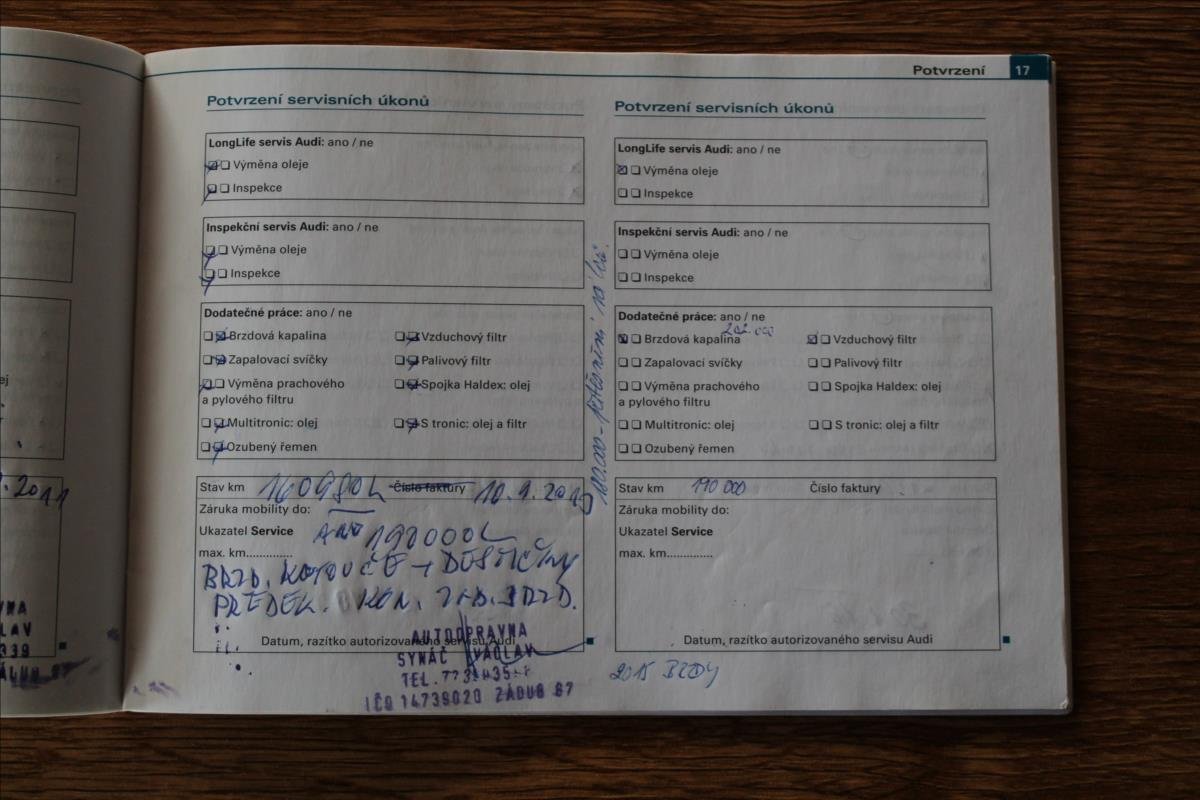 Potvrzení 17
Potvrzení servisních úkonů
LongLife servis Audi: ano / ne
Výměna oleje
Inspekce
Inspekční servis Audi: ano / ne
Výměna oleje
Inspekce
Dodatečné práce: ano / ne
Brzdová kapalina
Vzduchový filtr
Zapalovací svíčky
Palivový filtr
Výměna prachového
a pylového filtru
Spojka Haldex: olej
Multitronic: olej
S tronic: olej a filtr
Ozubený řemen
Stav km 160980 Číslo faktury
Záruka mobility do:
Ukazatel Service ANO
max. km..............
BRZD. KOTOUČE + DESTIČKY
PŘEDEK.
Datum, razítko autorizovaného servisu Audi
AUTOOPRAVNA
SYNÁČ VÁCLAV
TEL.
IČO 14739020 ZÁDUB 67
180.000 -
Potvrzení servisních úkonů
LongLife servis Audi: ano / ne
Výměna oleje
Inspekce
Inspekční servis Audi: ano / ne
Výměna oleje
Inspekce
Dodatečné práce: ano / ne
202.000
Brzdová kapalina
Vzduchový filtr
Zapalovací svíčky
Palivový filtr
Výměna prachového
a pylového filtru
Spojka Haldex: olej
Multitronic: olej
S tronic: olej a filtr
Ozubený řemen
Stav km 190 000 Číslo faktury
Záruka mobility do:
Ukazatel Service
max. km..............
Datum, razítko autorizovaného servisu Audi
2015 BRZDY